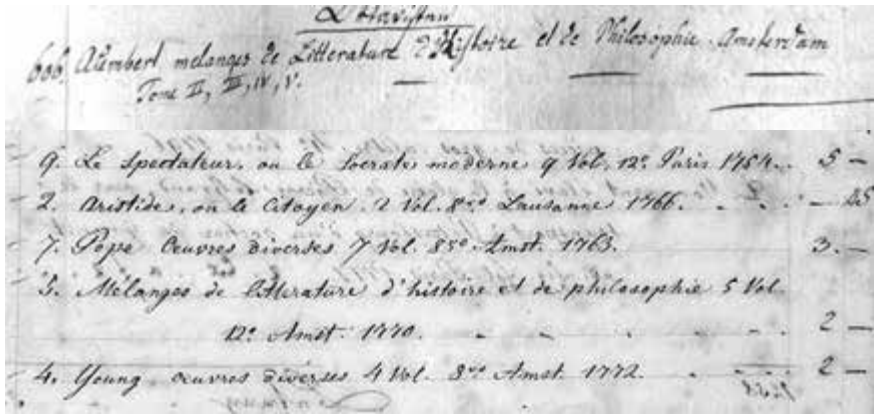 606. Alembert melanges de Litterature d'Histoire et de Philosophie. Amsterdam
Tome II, III, IV, V.
9. Le Spectateur, ou le Socrate moderne 9 Vol. 12º. Paris 1754. 5 —
2. Aristide, ou le Citoyen. 2 Vol. 8vo Lausanne 1766. —
7. Pope Oeuvres diverses 7 Vol. 8vo Amst. 1763. 3. —
5. Mélanges de litterature d'histoire et de philosophie 5 Vol.
12º Amst. 1770. 2 —
4. Young oeuvres diverses 4 Vol. 8vo Amst. 1772. 2 —